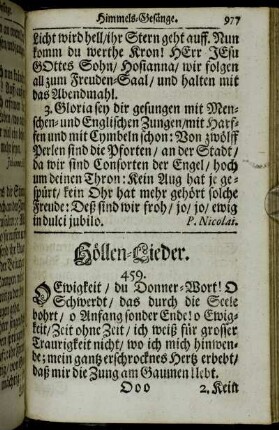 Himmels-Gesänge. 977
Licht wird hell/ ihr Stern geht auff. Nun
komm du werthe Kron! HErr JEsu
GOttes Sohn/ Hosianna/ wir folgen
all zum Freuden-Saal/ und halten mit
das Abendmahl.
3. Gloria sey dir gesungen mit Men-
schen- und Englischen Zungen/ mit Harf-
fen und mit Cymbeln schon: Von zwölff
Perlen sind die Pforten/ an der Stadt/
da wir sind Consorten der Engel/ hoch
um deinen Thron: Kein Aug hat je ge-
spürt/ kein Ohr hat mehr gehört solche
Freude: Deß sind wir froh/ jo/ jo/ ewig
in dulci jubilo. P. Nicolai.
Höllen-Lieder.
459.
O Ewigkeit/ du Donner-Wort! O
Schwerdt/ das durch die Seele
bohrt/ o Anfang sonder Ende! o Ewig-
keit/ Zeit ohne Zeit/ ich weiß für grosser
Traurigkeit nicht/ wo ich mich hinwen-
de; mein gantz erschrocknes Hertz erbebt/
daß mir die Zung am Gaumen klebt.
Ooo 2. Kein